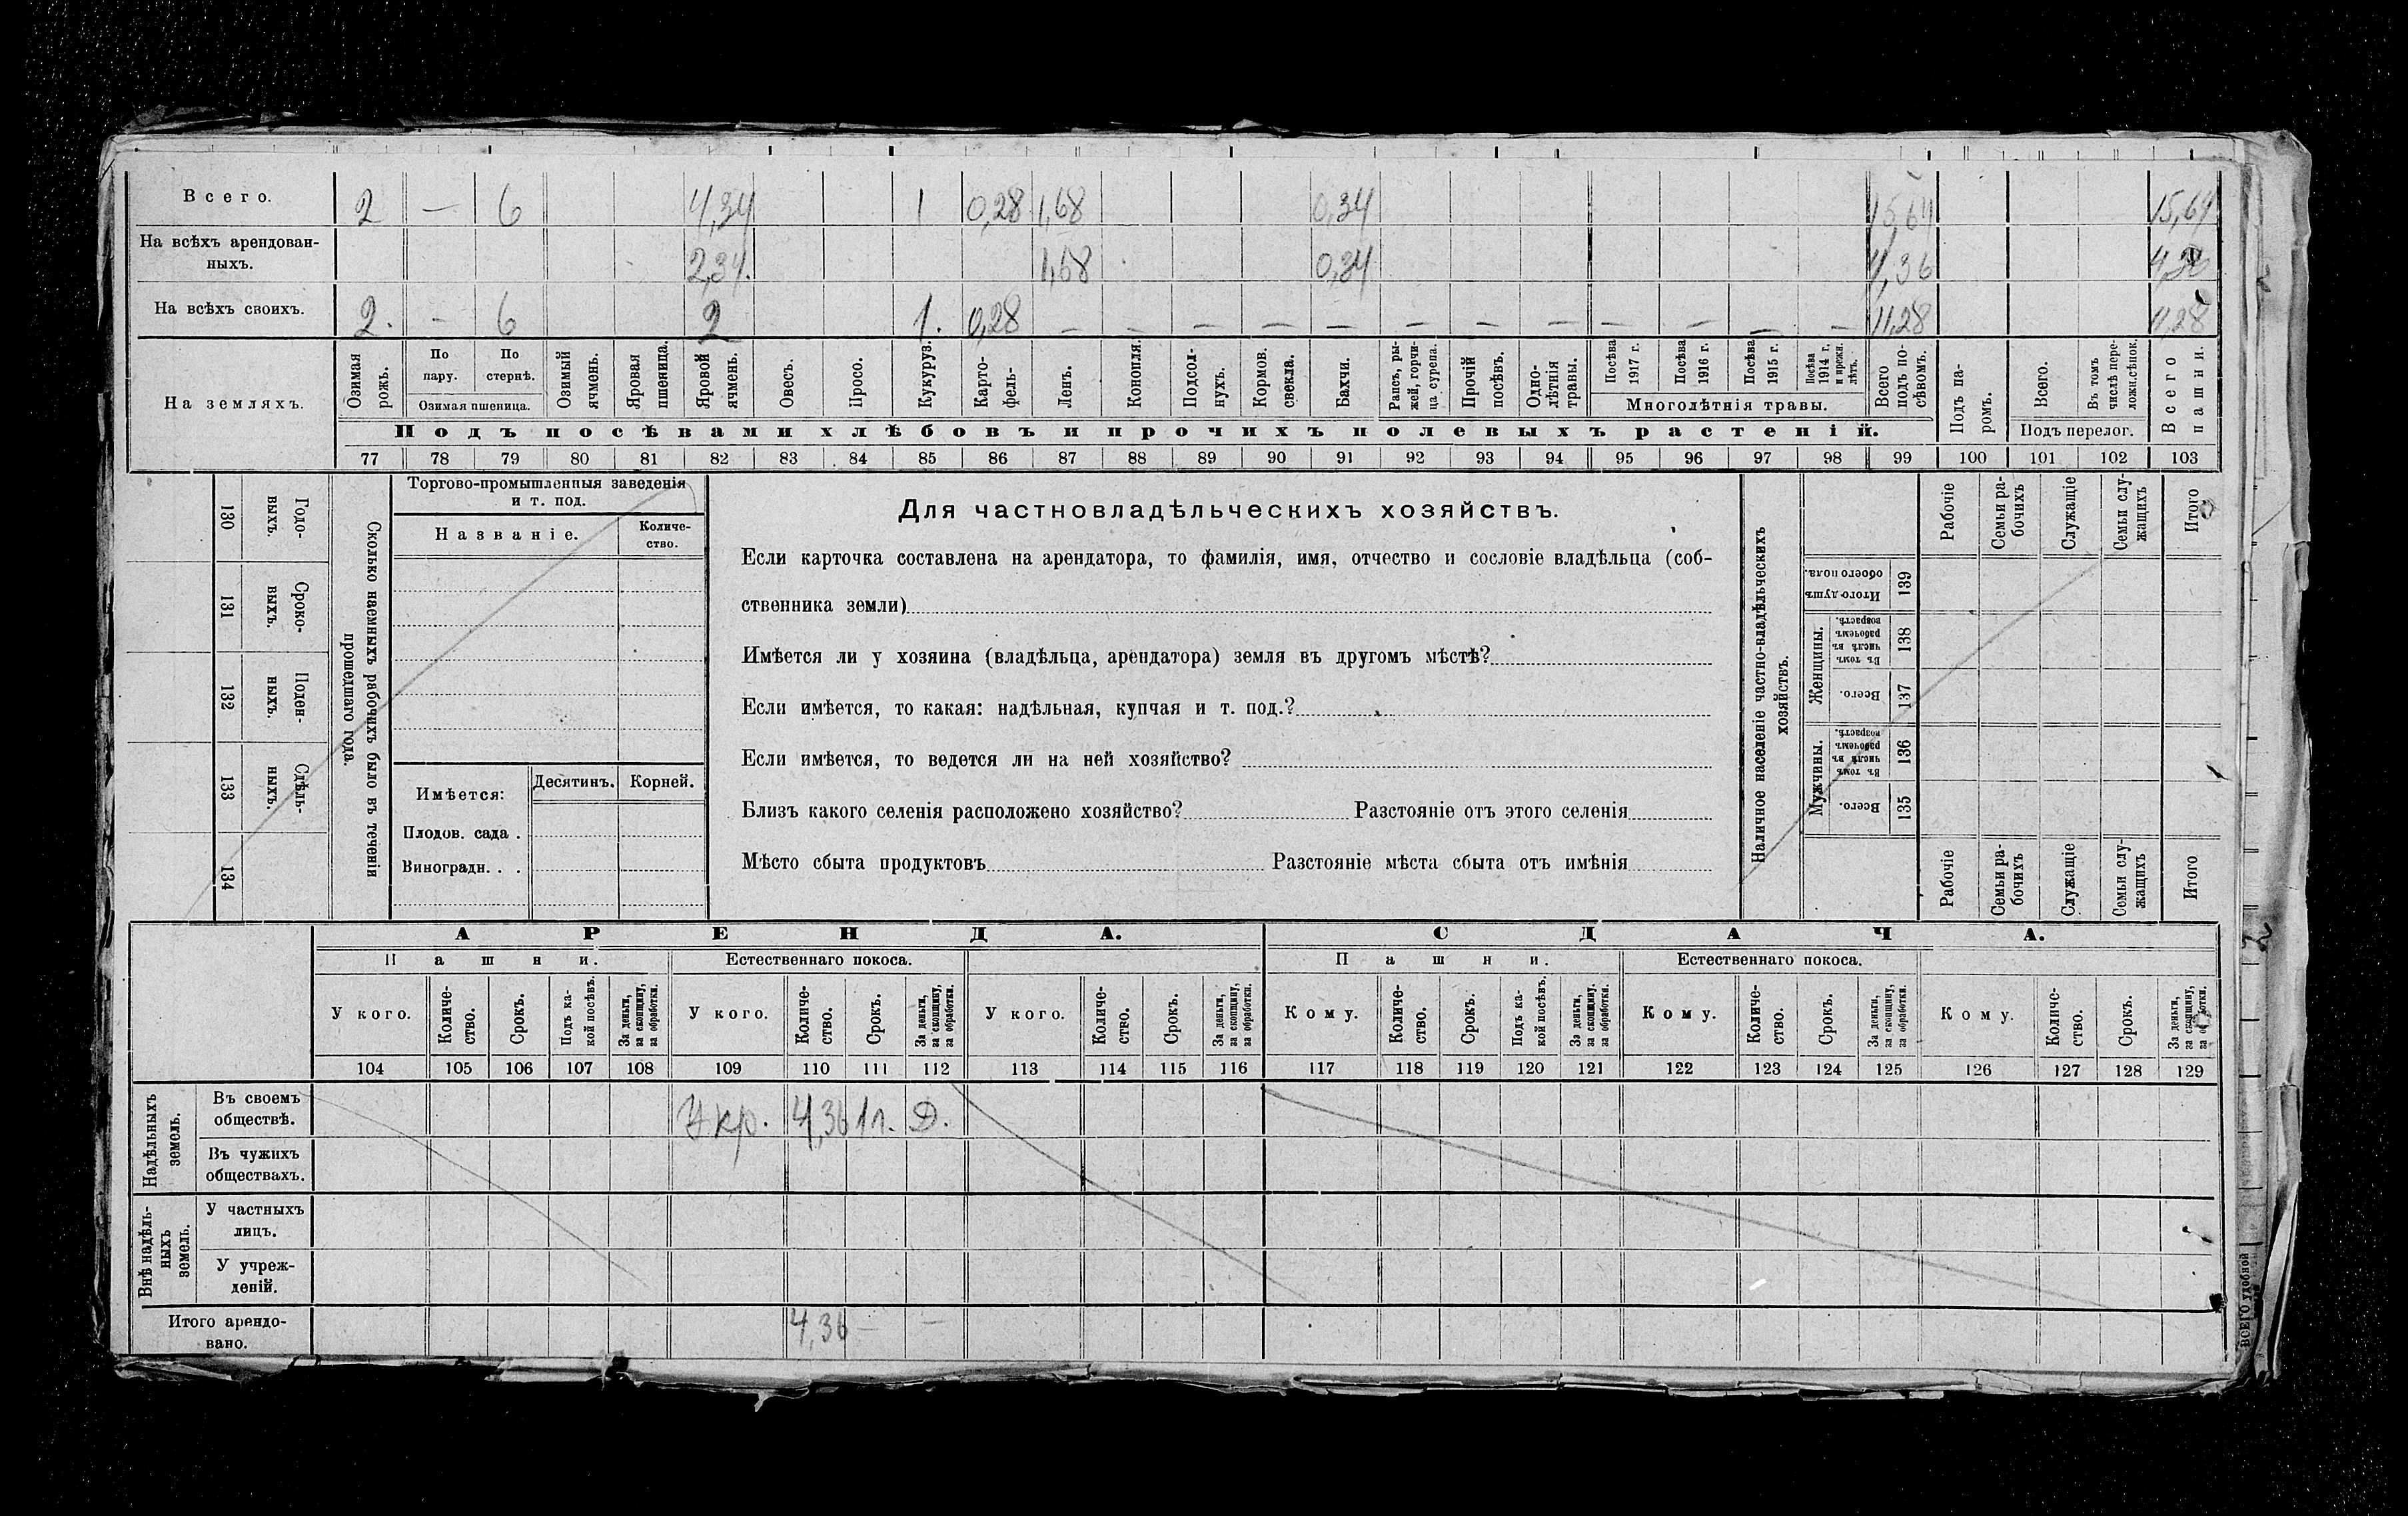 Всего. 2 — 6 4,34 1 0,28 1,68 0,34 15,64 15,64
На всѣхъ арендован-
ныхъ. 2,34. 1,68 0,34 4,36 4,36
На всѣхъ своихъ. 2. - 6 2 1. 0,28 — — — — — — — — — — — — 11,28
На земляхъ.
Озимая рожь.
По пару.
По стернѣ.
Озимая пшеница.
Озимый ячмень.
Яровая пшеница.
Яровой ячмень.
Овесъ.
Просо.
Кукуруз.
Карто-
фель-
Ленъ.
Конопля.
Подсол-
нухъ.
Кормов.
свекла.
Бахчи.
Рапсъ, ры-
жей, горчи-
ца сурепа.
Прочій
посѣвъ.
Одно-
лѣтнія
травы.
Посѣва
1917 г.
Посѣва
1916 г.
Посѣва
1915 г.
Посѣва
1914 г.
и прежн.
лѣтъ.
Многолѣтнія травы.
Всего
подъ по-
сѣвомъ.
Подъ па-
ромъ.
Всего.
Въ томъ
числѣ пере-
ложн.сѣнок.
Подъ перелог.
Всего
пашни.
Подъ посѣвами хлѣбовъ и прочихъ полевыхъ растеній.
77 78 79 80 81 82 83 84 85 86 87 88 89 90 91 92 93 94 95 96 97 98 99 100 101 102 103
130 Годо-
ныхъ.
131 Сроко-
ныхъ.
132 Поден-
ныхъ.
133 Сдѣль-
ныхъ.
134
Сколько наемныхъ рабочихъ было въ теченіи
прошедшаго года.
Торгово-промышленныя заведенія
и т. под.
Названіе.
Количе-
ство.
Имѣется: Десятинъ. Корней.
Плодов. сада .
Виноградн. . .
Для частновладѣльческихъ хозяйствъ.
Если карточка составлена на арендатора, то фамилія, имя, отчество и сословіе владѣльца (соб-
ственника земли)
Имѣется ли у хозяина (владѣльца, арендатора) земля въ другомъ мѣстѣ?
Если имѣется, то какая: надѣльная, купчая и т. под.?
Если имѣется, то ведется ли на ней хозяйство?
Близъ какого селенія расположено хозяйство? Разстояніе отъ этого селенія
Мѣсто сбыта продуктовъ Разстояніе мѣста сбыта отъ имѣнія
Наличное населеніе частно-владѣльческихъ
хозяйствъ.
Рабочіе
Семьи ра-
бочихъ
Служащіе
Семьи слу-
жащихъ
Итого
Итого душъ
обоего пола. 139
Женщины.
Въ томъ
числѣ въ
рабочемъ
возрастѣ. 138
Всего. 137
Мужчины.
Въ томъ
числѣ въ
рабочемъ
возрастѣ. 136
Всего. 135
Рабочіе
Семьи ра-
бочихъ
Служащіе
Семьи слу-
жащихъ
Итого
АРЕНДА. СДАЧА.
Пашни. Естественнаго покоса. Пашни. Естественнаго покоса.
У кого.
Количе-
ство.
Срокъ.
Подъ ка-
кой посѣвъ.
За деньги,
за скопщину,
за обработки.
У кого.
Количе-
ство.
Срокъ.
За деньги,
за скопщину,
за обработки.
У кого.
Количе-
ство.
Срокъ.
За деньги,
за скопщину,
за обработки.
Кому.
Количе-
ство.
Срокъ.
Подъ ка-
кой посѣвъ.
За деньги,
за скопщину,
за обработки.
Кому.
Количе-
ство.
Срокъ.
За деньги,
за скопщину,
за обработки.
Кому.
Количе-
ство.
Срокъ.
За деньги,
за скопщину,
104 105 106 107 108 109 110 111 112 113 114 115 116 117 118 119 120 121 122 123 124 125 126 127 128 129
Надѣльныхъ
земель.
Въ своемъ
обществѣ. У кр. 4,36 1 л. Д.
Въ чужихъ
обществахъ.
Внѣ надѣль-
ныхъ
земель.
У частныхъ
лицъ.
У учреж-
деній.
Итого арендо-
вано. 4,36 — —
ВСЕГО удобной